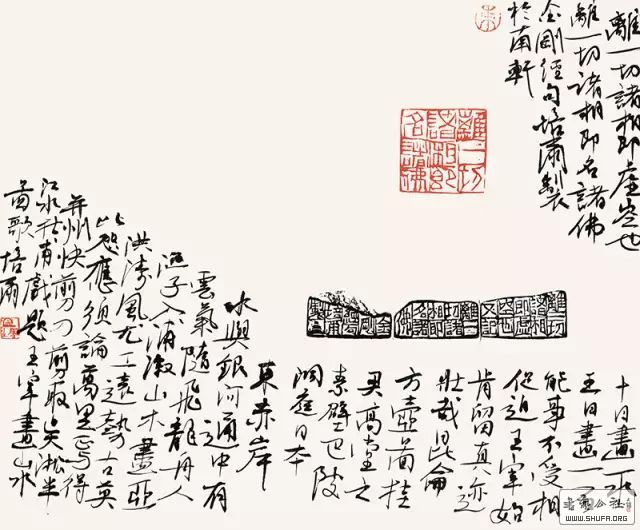 離一切諸相即虛空也
離一切諸相即名諸佛
金剛經句培爾製
於南軒
離一切
諸相即
名諸佛
十日畫一水
五日畫一
能事不受相
促迫王宰始
肯留真迹
壯哉崑崙
方壺圖挂
君高堂之
素壁巴陵
洞庭日本
東赤岸
水與銀河通中有
雲氣隨飛龍舟人
漁子入浦漵山木盡亞
洪濤風尤工遠勢古莫
比咫應須論萬里焉得
并州快剪刀剪取吳淞半
江水杜甫戲題王宰畫山水
圖歌培爾
WWW.SHUFA.ORG